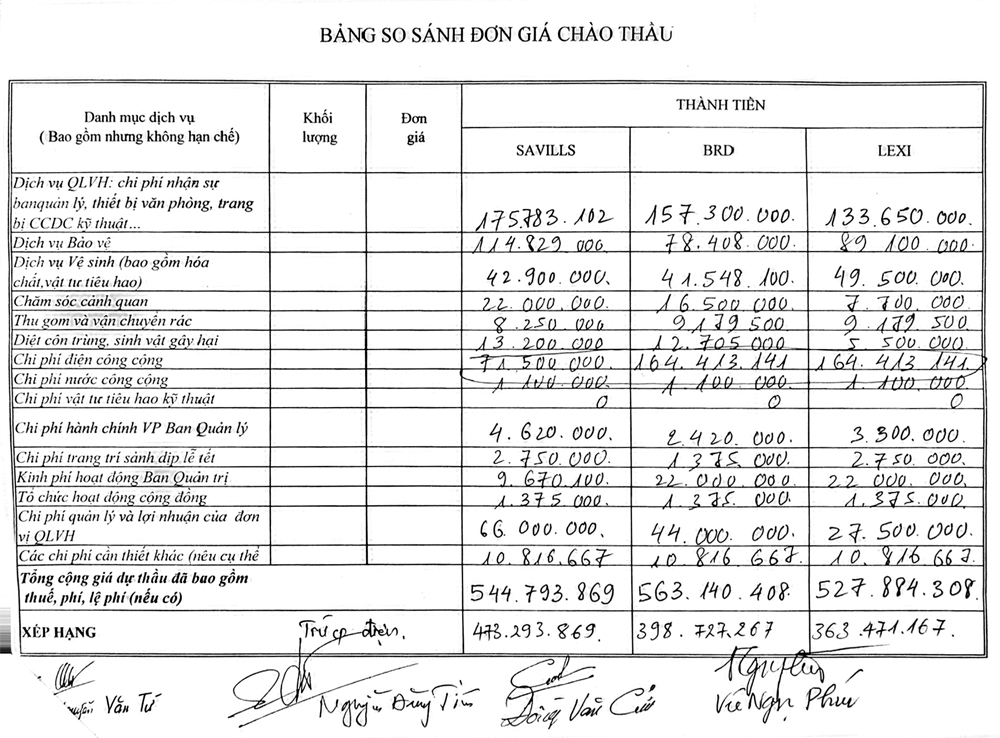 BẢNG SO SÁNH ĐƠN GIÁ CHÀO THẦU
Danh mục dịch vụ
( Bao gồm nhưng không hạn chế)
Khối
lượng
Đơn
giá
THÀNH TIỀN
SAVILLS BRD LEXI
Dịch vụ QLVH: chi phí nhận sự
banquản lý, thiết bị văn phòng, trang
bị CCDC kỹ thuật... 175783.102 157.300.000. 133.650.000.
Dịch vụ Bảo vệ 114.829 000 78.408.000. 89 100.000
Dịch vụ Vệ sinh (bao gồm hóa
chất,vật tư tiêu hao) 42.900.000. 41.548.100. 49.500.000.
Chăm sóc cảnh quan 22.000.000. 16.500.000 7.700.000
Thu gom và vận chuyển rác 8.250.000 9179500 9.179.500.
Diệt côn trùng, sinh vật gây hại 13.200.000 12.705000 5 500.000.
Chi phí điện công cộng 71.500.000. 164.413.141 164.413.141.
Chi phí nước công cộng 1 100.000. 1.100.000. 1.100.000
Chi phí vật tư tiêu hao kỹ thuật 0 0 0
Chi phí hành chính VP Ban Quản lý 4.620.000. 2.420.000. 3.300.000.
Chi phí trang trí sảnh dịp lễ tết 2.750.000. 1375.000 2.750.000.
Kinh phí hoạt động Ban Quản trị 9.670.100. 22.000.000 22.000.000.
Tổ chức hoạt động cộng đồng 1.375.000. 1.375.000 1.375.000.
Chi phí quản lý và lợi nhuận của đơn
vị QLVH 66.000.000. 44.000.000 27.500.000
Các chi phí cần thiết khác (nêu cụ thể 10.816.667 10.816.667. 10.816.667.
Tổng cộng giá dự thầu đã bao gồm
thuế, phí, lệ phí (nếu có) 544.793.869 563.140.408. 527.884.308.
XẾP HẠNG Trừ cp điện. 473.293.869. 398.727.267 363.471.167.
Văn Tứ Nguyễn Văn Phúc